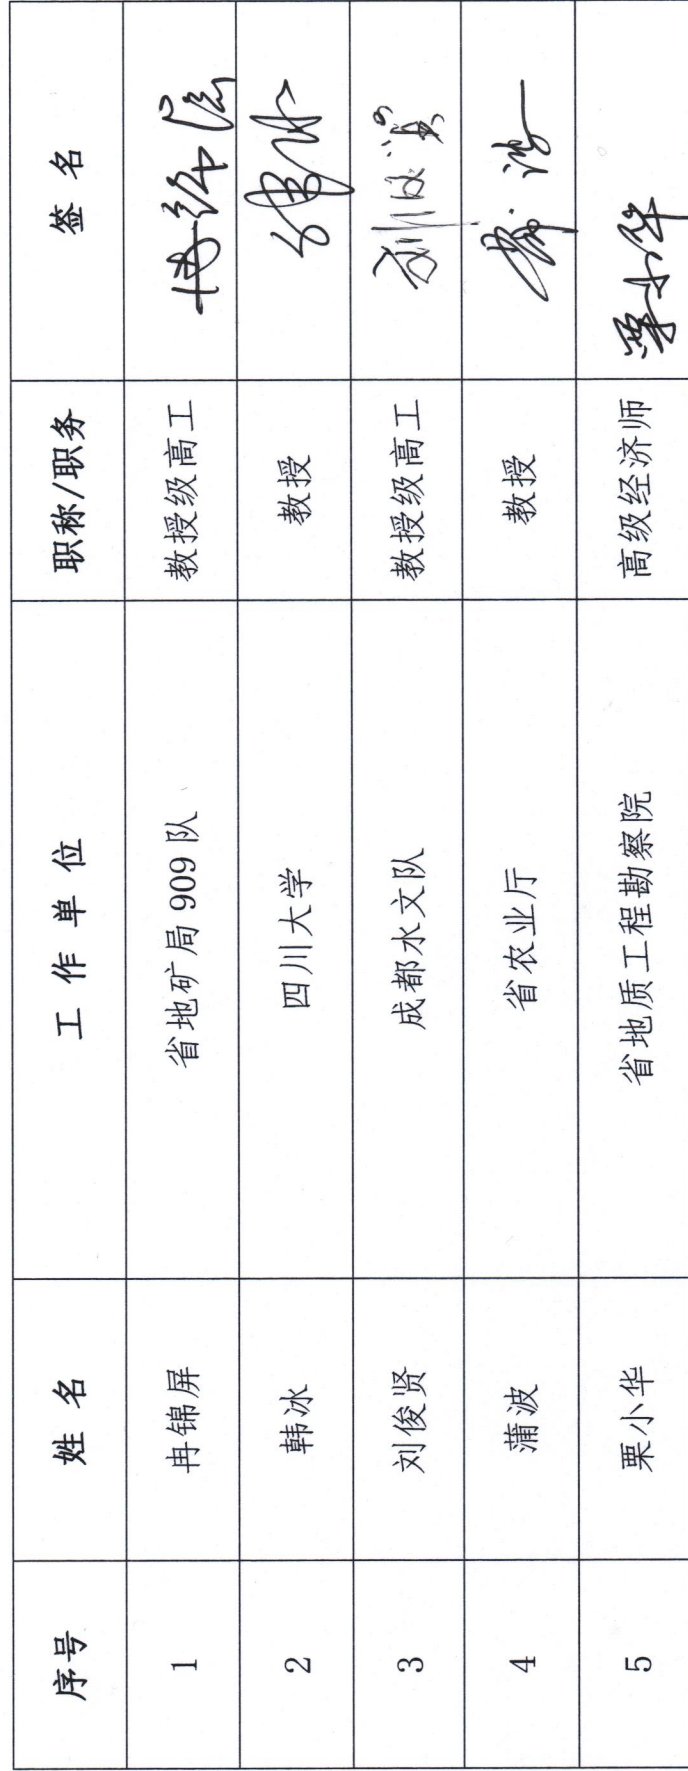 序号 姓名 工作单位 职称/职务 签名
1 冉锦屏 省地矿局 909 队 教授级高工
2 韩冰 四川大学 教授
3 刘俊贤 成都水文队 教授级高工
4 蒲波 省农业厅 教授
5 栗小华 省地质工程勘察院 高级经济师 栗小华